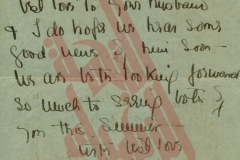 best love to your husband
& I do hope we hear some
good news of him soon -
We are both looking forward
so much to seeing both of
you this Summer
with best love